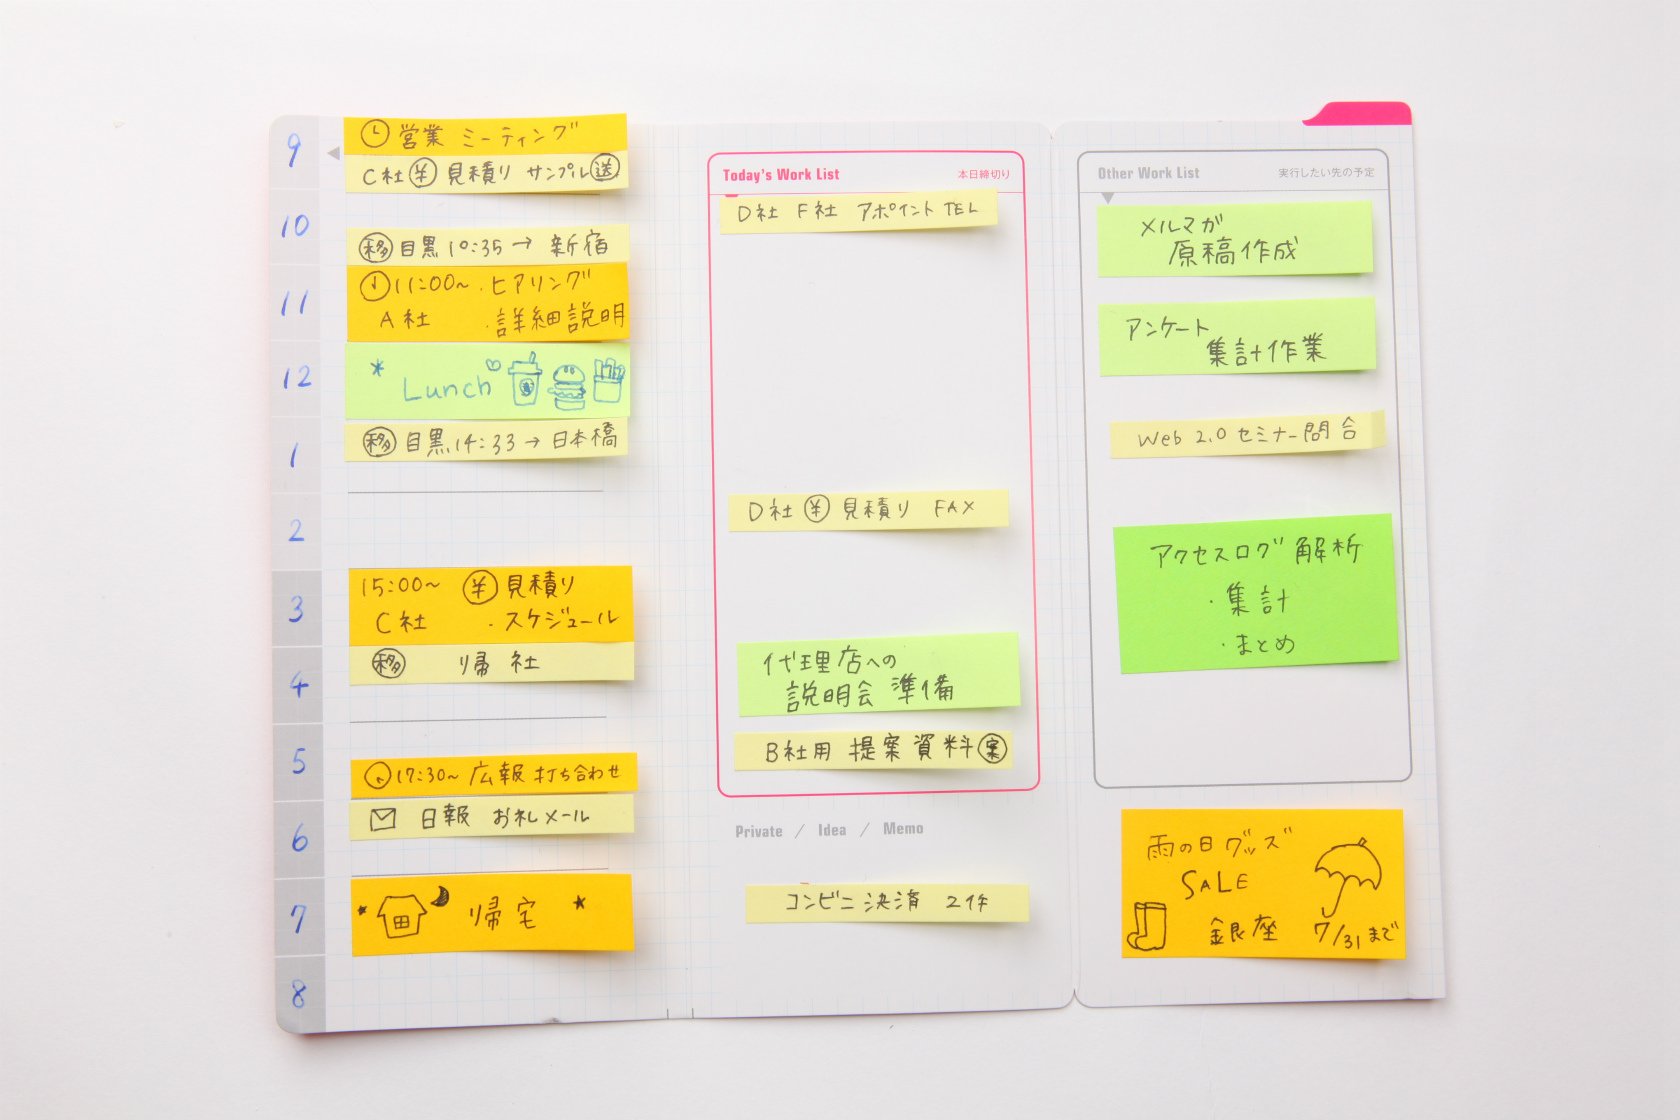 9
営業 ミーティング
C社 ¥ 見積り サンプル 送
10
移 目黒 10:35 → 新宿
11
11:00～ ・ヒアリング
A社 ・詳細説明
12
Lunch
1
移 目黒 14:33 → 日本橋
2
3
15:00～ ¥ 見積り
C社 ・スケジュール
4
移 帰社
5
17:30～ 広報 打ち合わせ
6
日報 お礼メール
7
帰宅
8
Today's Work List 本日締切り
D社 F社 アポイント TEL
D社 ¥ 見積り FAX
代理店への
説明会 準備
B社用 提案資料 案
Private / Idea / Memo
コンビニ決済 2件
Other Work List 実行したい先の予定
メルマガ
原稿作成
アンケート
集計作業
Web 2.0 セミナー問合
アクセスログ 解析
・集計
・まとめ
雨の日グッズ
SALE
銀座 7/31まで